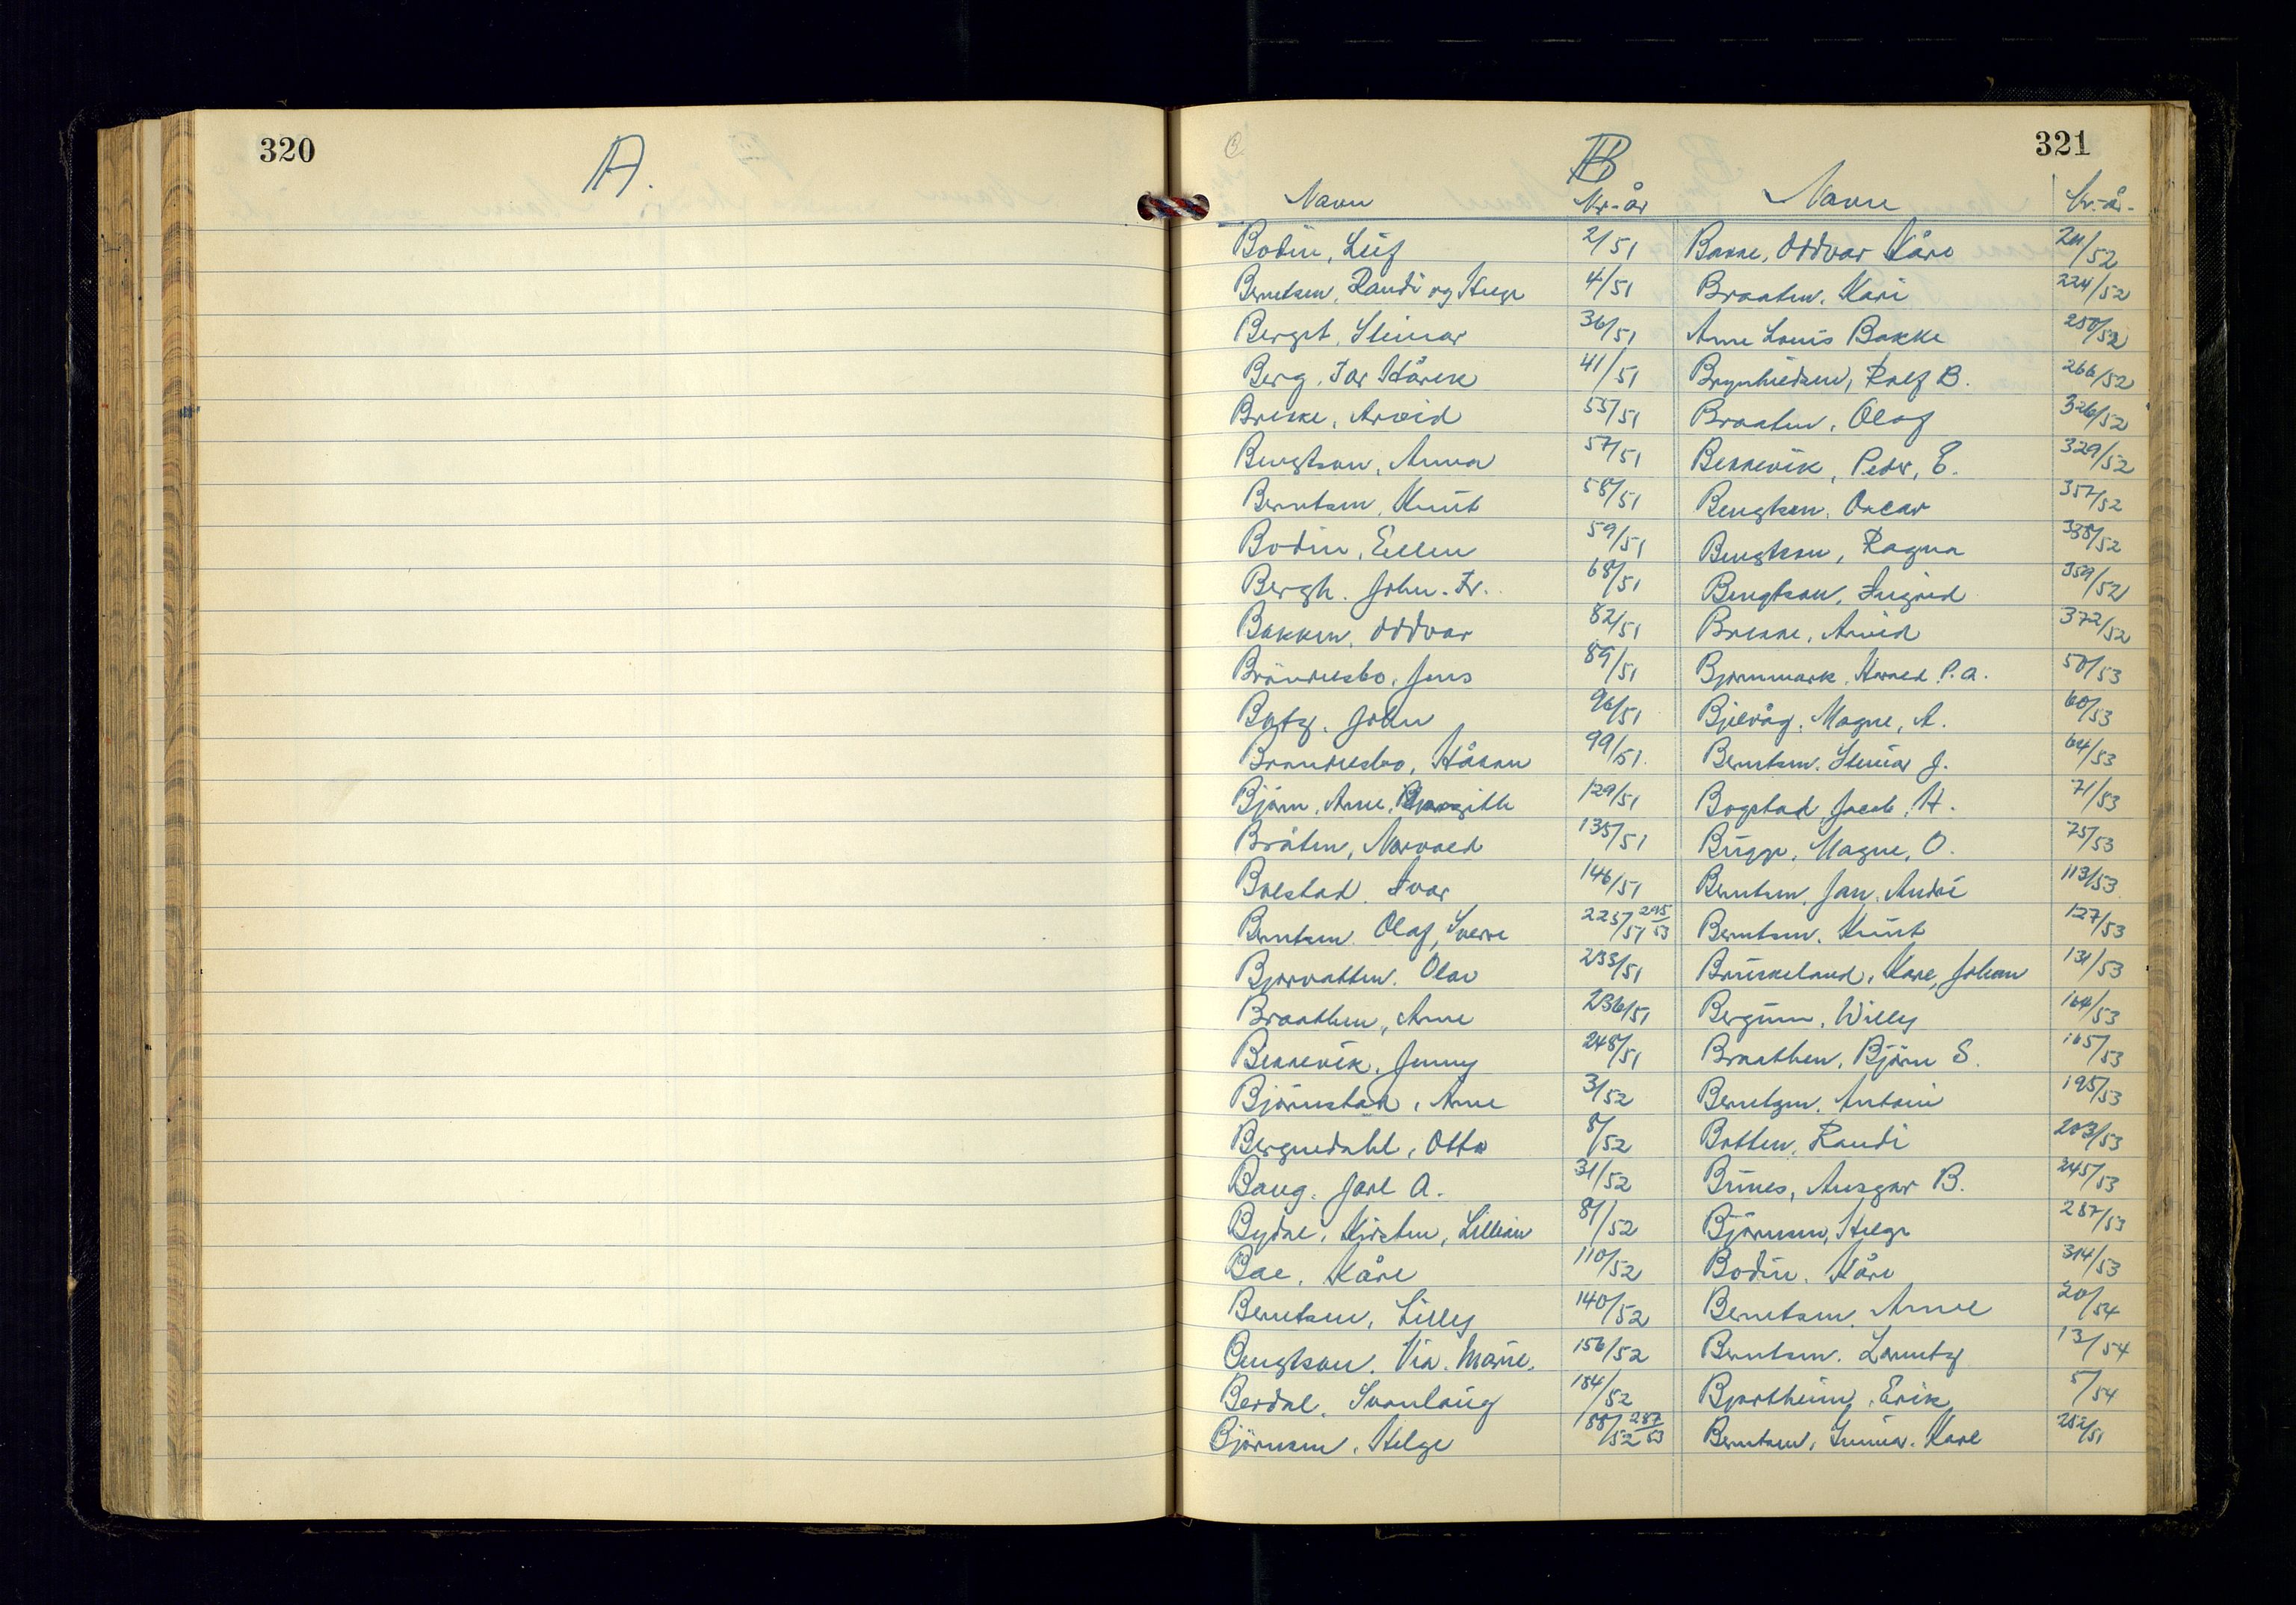 320
A.
321
B
Navn Nr-år Navn Nr.-år-
Bodin, Leif 2/51
Berntsen, Randi og Helge 4/51
Berget, Steinar 36/51
Berg, Tor Hårek 41/51
Breske, Arvid 55/51
Bengtson, Anna 57/51
Berntsen, Knut 58/51
Bodin, Ellen 59/51
Bergh. John. Fr. 68/51
Bakken, Oddvar 82/51
Bröndelsbo, Jens 89/51
John 96/51
Brandelsbo, Håkon 99/51
Björn, Arne, 129/51
Bråten, Norvald 135/51
Bolstad. Ivar 146/51
Berntsen. Olaf, Sverre 225/51 295/53
Bjorvatten. Olav 233/51
Braathen, Arne 236/51
Bekkevik, Jenny 248/51
Björnstad, Arne 3/52
Bergnedahl, Otto 8/52
Baug. Jarl A. 31/52
Bydal, Kirsten, Lillian 81/52
Bae, Kåre 110/52
Berntsen, Lilly 140/52
Bengtson. Via. Marie. 156/52
Berdal. Svanlaug 184/52
Björnsen, Helge 188/52 287/53
Bakke, Oddvar Kåre 211/52
Braaten, Kari 224/52
Anne Louis Bakke 250/52
Brynhildsen, Rolf B. 266/52
Braaten, Olaf 326/52
Bekkevik, Peder, E. 329/52
Bengtson, Oscar 357/52
Bengtson, Ragna 358/52
Bengtson, Ingrid 359/52
Brekke, Arvid 372/52
Bjornmark, Harald P.A. 50/53
Bjelvåg, Magne, A. 60/53
Berntsen. Steinar J. 64/53
Bogstad, Jacob, H. 71/53
Bugge, Magne, O. 75/53
Berntsen, Jan, André 113/53
Berntsen. Knut 127/53
Bruskeland, Kare, Johan 131/53
Bergum, Willy 164/53
Braathen, Björn S. 165/53
Berntzen. Antoni 195/53
Botten, Randi 203/53
Bunes, Ansgar B. 245/53
Björnsen, Helge 287/53
Bodin. Kåre 314/53
Berntsen. Arne 20/54
Berntsen. Lorentz 13/54
Bjartheim, Erik 5/54
Berntsen, Kare 252/51